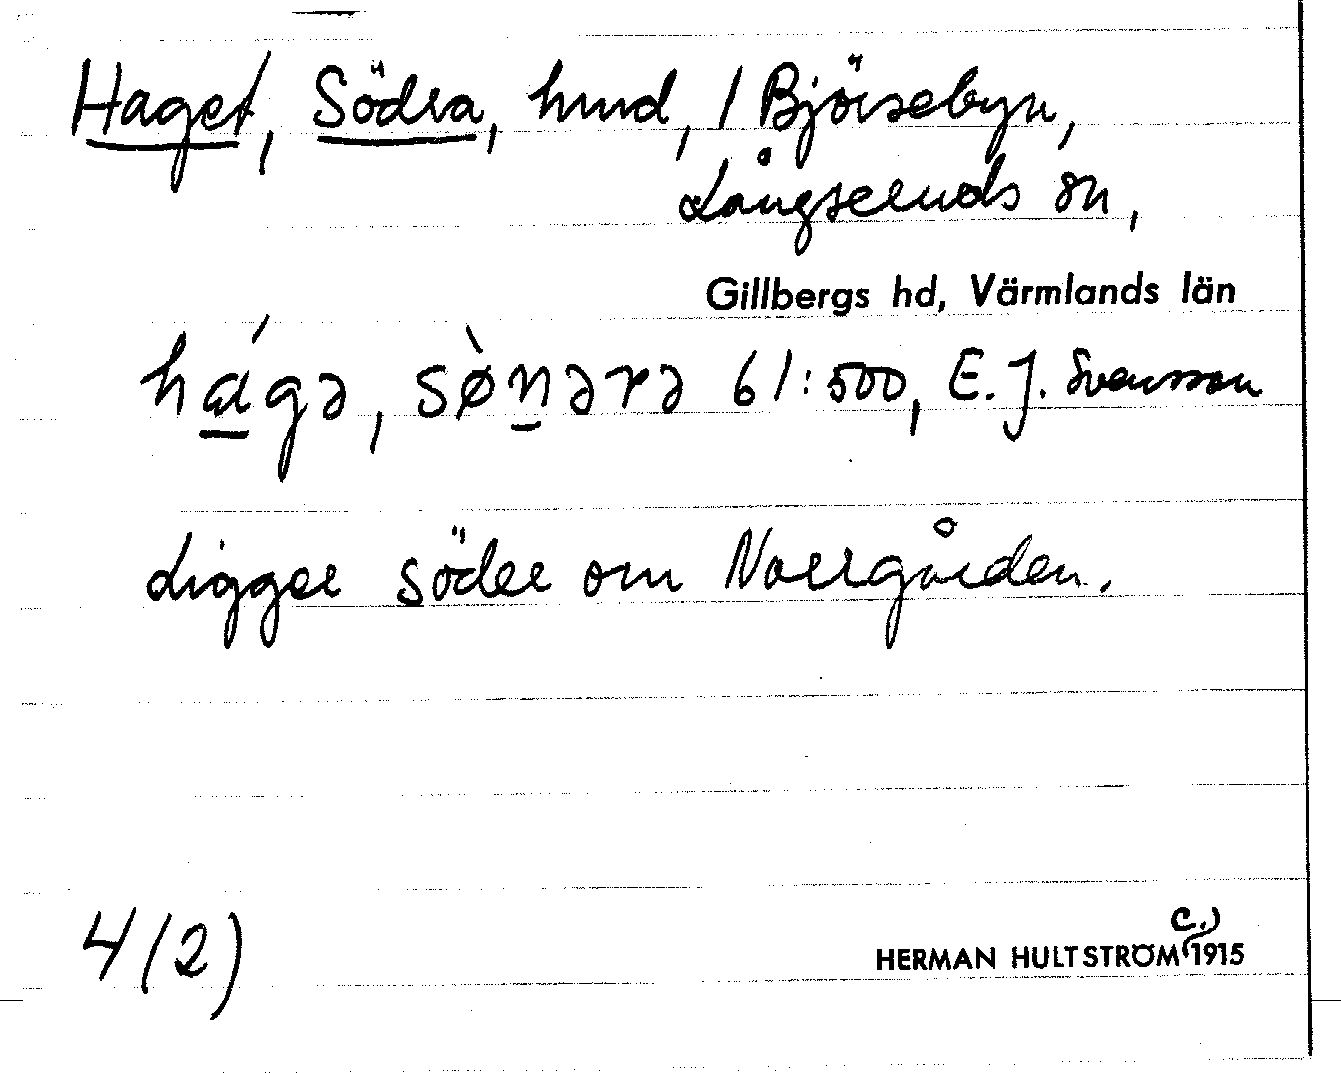 Haget, Södra, hmd, 1 Björsebyn,
Långseruds sn,
Gillbergs hd, Värmlands län
há̱gə, sø̀n̠ərə 61:500, E. J. Svensson
Ligger söder om Norrgården.
4(2)
C.)
HERMAN HULTSTRÖM 1915